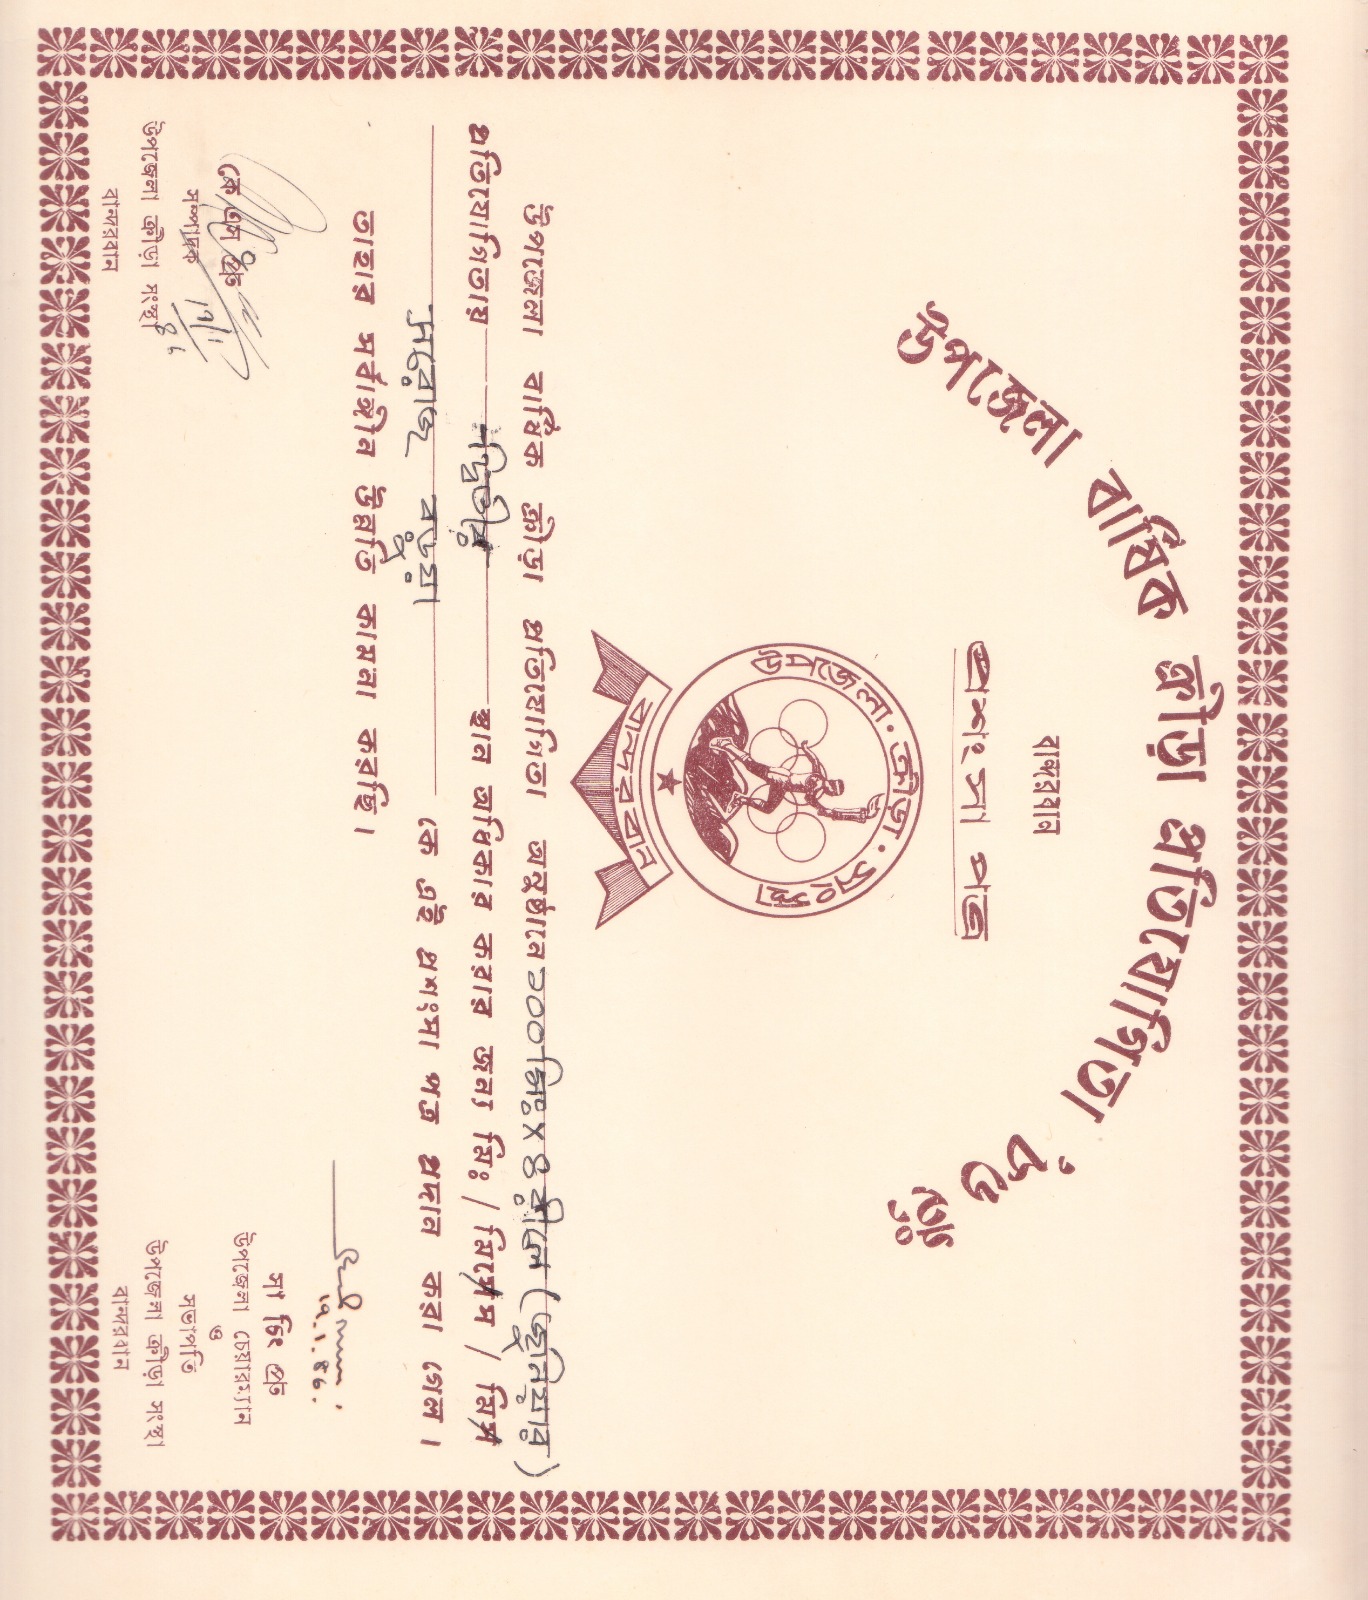 উপজেলা বার্ষিক ক্রীড়া প্রতিযোগিতা '৮৬ ইং
বান্দরবান
প্রশংসা পত্র
উপজেলা · ক্রীড়া · সংস্থা
বান্দরবান
উপজেলা বার্ষিক ক্রীড়া প্রতিযোগিতা অনুষ্ঠানে ১০০ মিঃ x ৪ রীলে (জুনিয়ার)
প্রতিযোগিতায় দ্বিতীয় স্থান অধিকার করার জন্য মিঃ / মিসেস / মিস
সরোজ বড়ুয়া কে এই প্রশংসা পত্র প্রদান করা গেল।
তাহার সর্বাঙ্গীন উন্নতি কামনা করছি।
19.1.86.
সা চিং প্রু
উপজেলা চেয়ারম্যান
ও
সভাপতি
উপজেলা ক্রীড়া সংস্থা
বান্দরবান
কে এস প্রু
19/1/86
সম্পাদক
উপজেলা ক্রীড়া সংস্থা
বান্দরবান